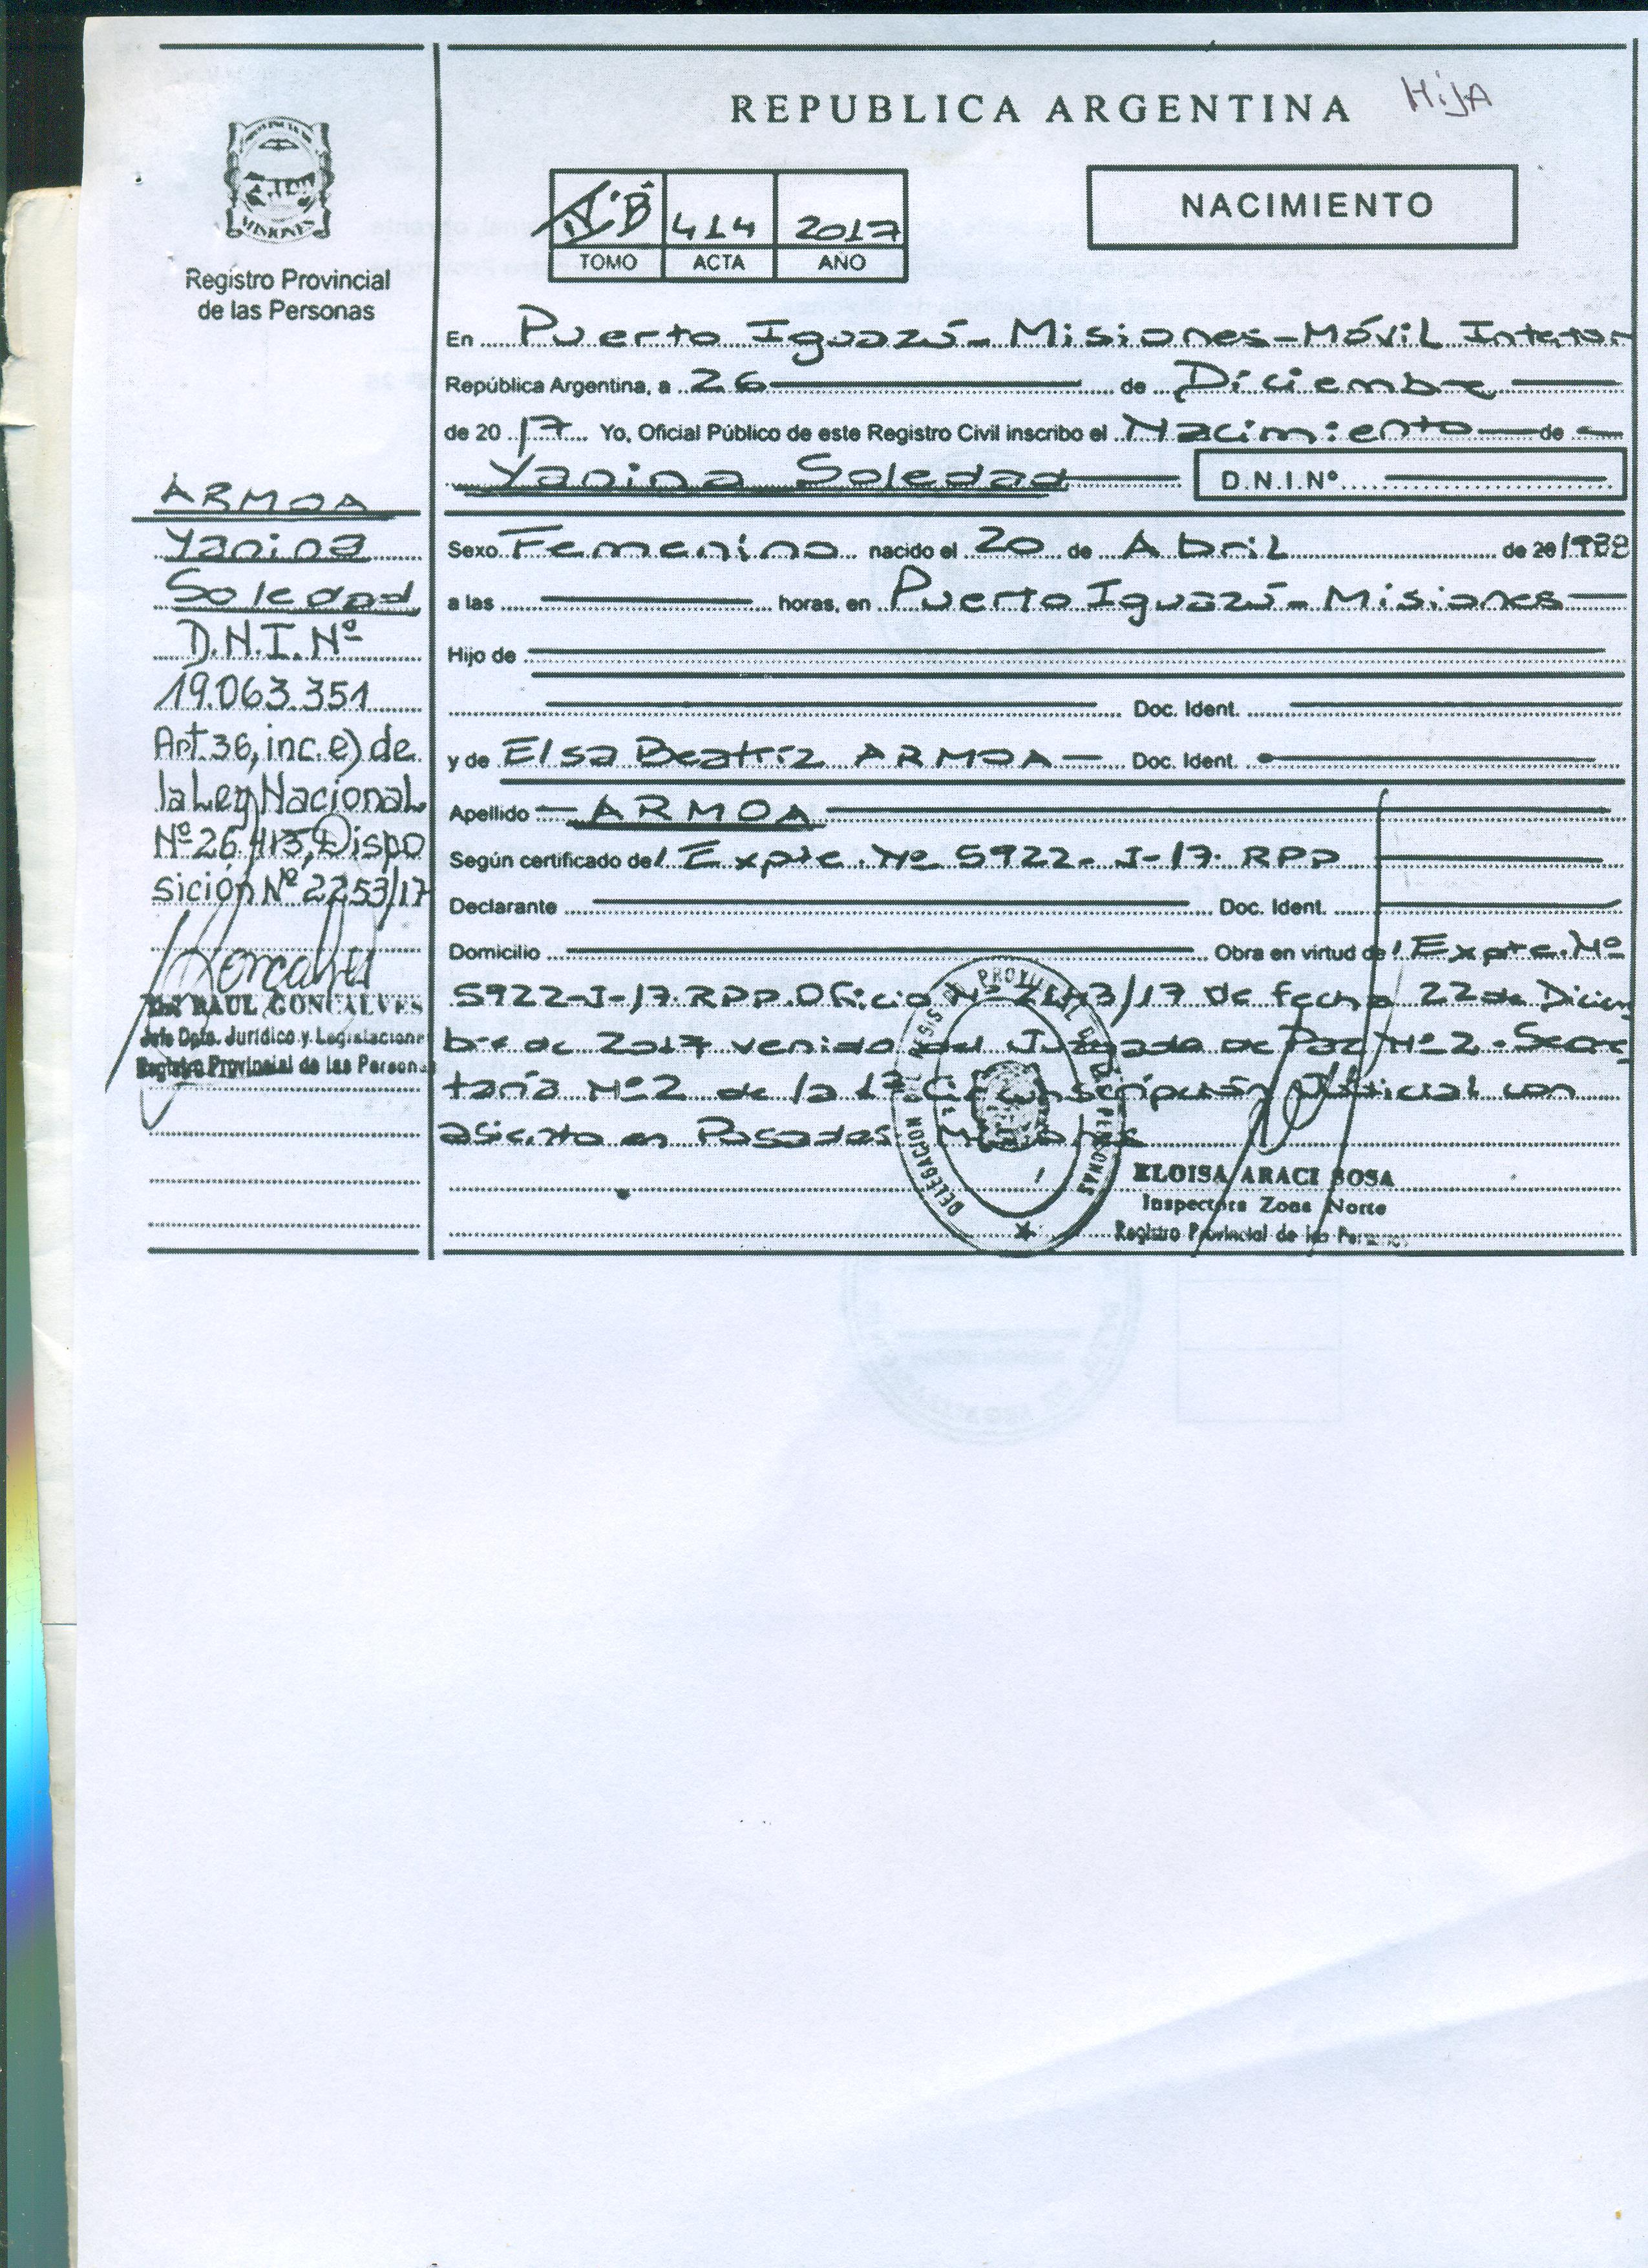 HIJA
REPUBLICA ARGENTINA
NACIMIENTO
414 2017
TOMO ACTA AÑO
MISIONES
Registro Provincial
de las Personas
En Puerto Iguazú - Misiones - Móvil
República Argentina, a 26 de Diciembre
de 20 17 Yo, Oficial Público de este Registro Civil inscribo el Nacimiento de
Yanina Soledad D.N.I.Nº
Sexo Femenino nacido el 20 de Abril de 20
a las horas, en Puerto Iguazú - Misiones
Hijo de
Doc. Ident.
y de Elsa Beatriz ARMOA Doc. Ident.
Apellido ARMOA
Según certificado de l Expte. Nº 5922-J-17. RPP
Declarante Doc. Ident.
Domicilio Obra en virtud de l Expte. Nº
5922-J-17.RPP. Oficio Nº /17 de fecha 22 de Diciem
bre de 2017 venido del Juzgado de Paz Nº 2 - Secre
taría Nº 2 de la Circunscripción Judicial con
asiento en Posadas Misiones
ARMOA
Yanina
Soledad
D.N.I. Nº
19.063.351
Art. 36, inc. e) de
la Ley Nacional
Nº 26.413, Dispo
sición Nº 2253/17
RAUL GONCALVES
Jefe Dpto. Jurídico y Legislacione
Registro Provincial de las Person
DELEGACION DEL REGISTRO PROVINCIAL DE LAS PERSONAS
ELOISA ARACI SOSA
Inspectora Zona Norte
Registro Provincial de las Personas